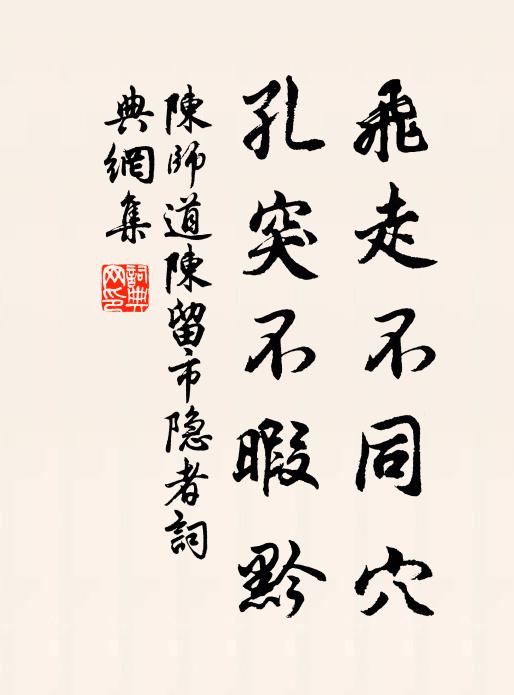 飛走不同穴
孔突不暇黔
陳師道陳留市隐者詞
典網集
詞典网印